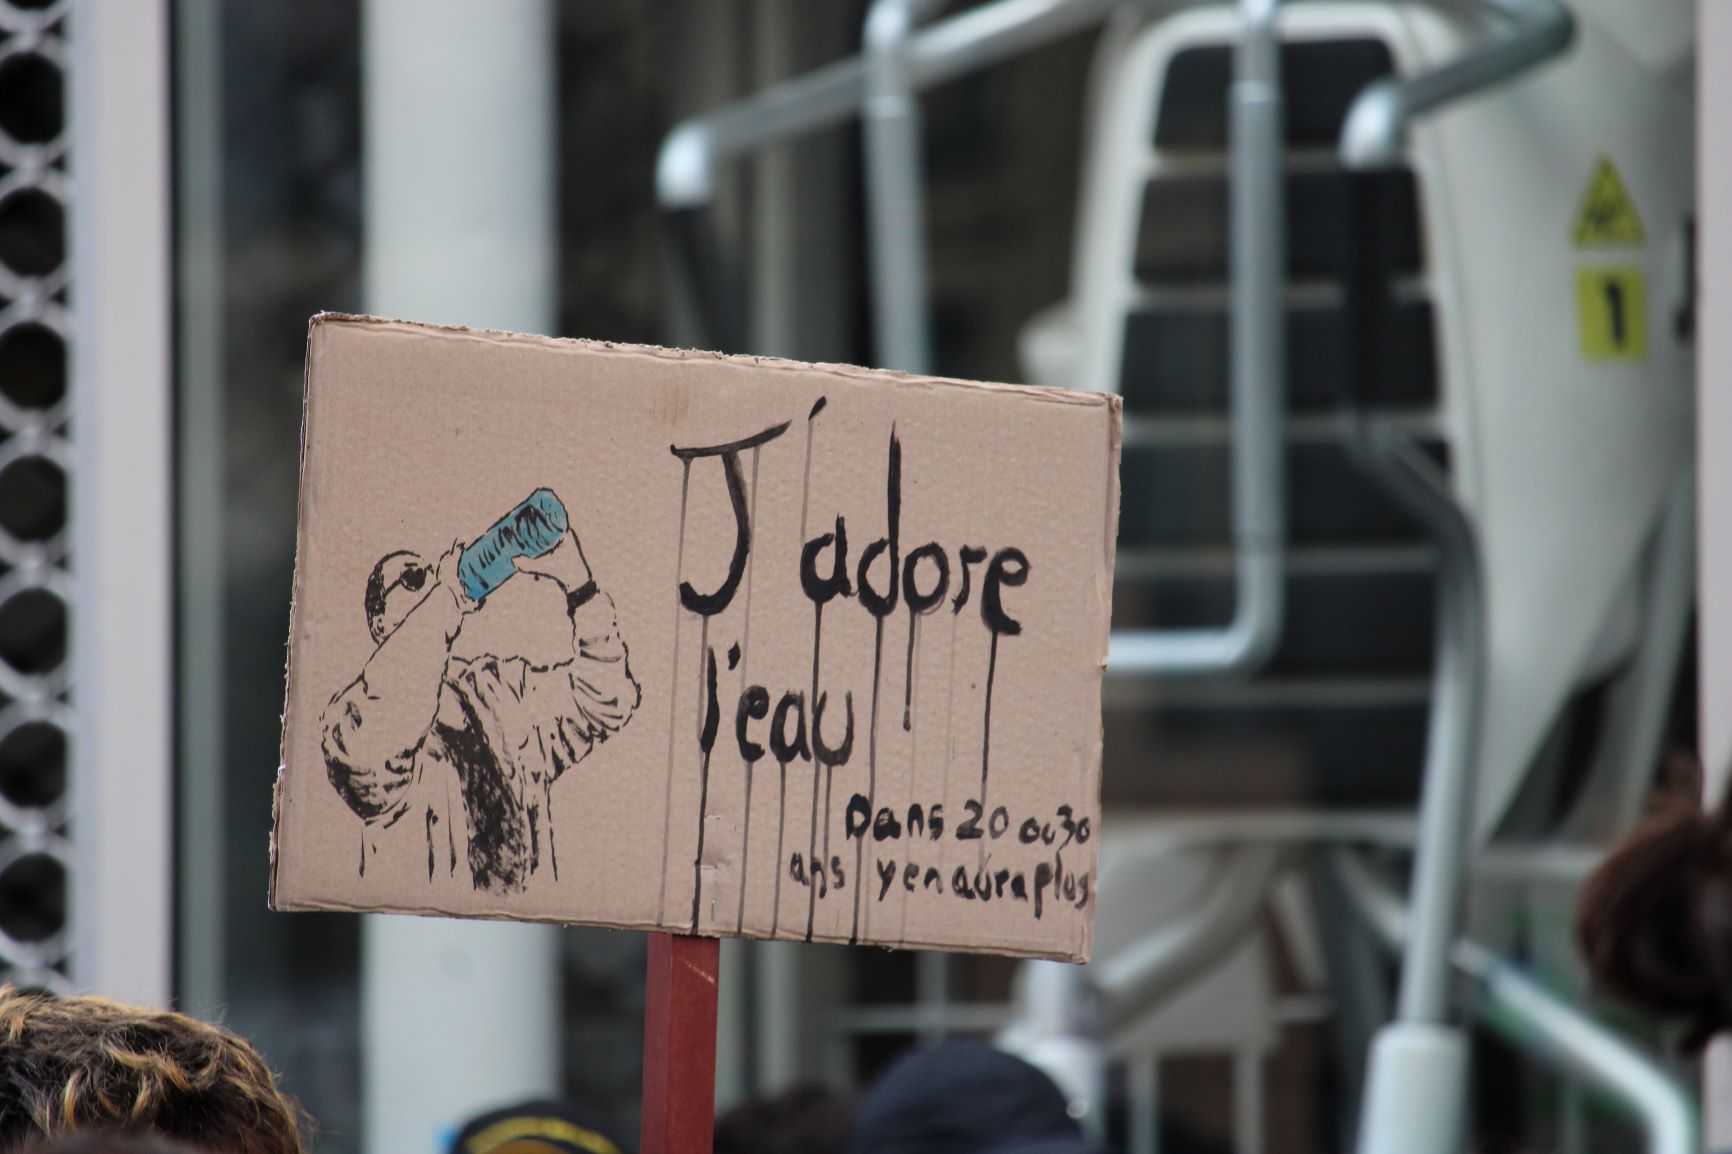 J'adore
l'eau
Dans 20 ou 30
ans y en aura plus
1